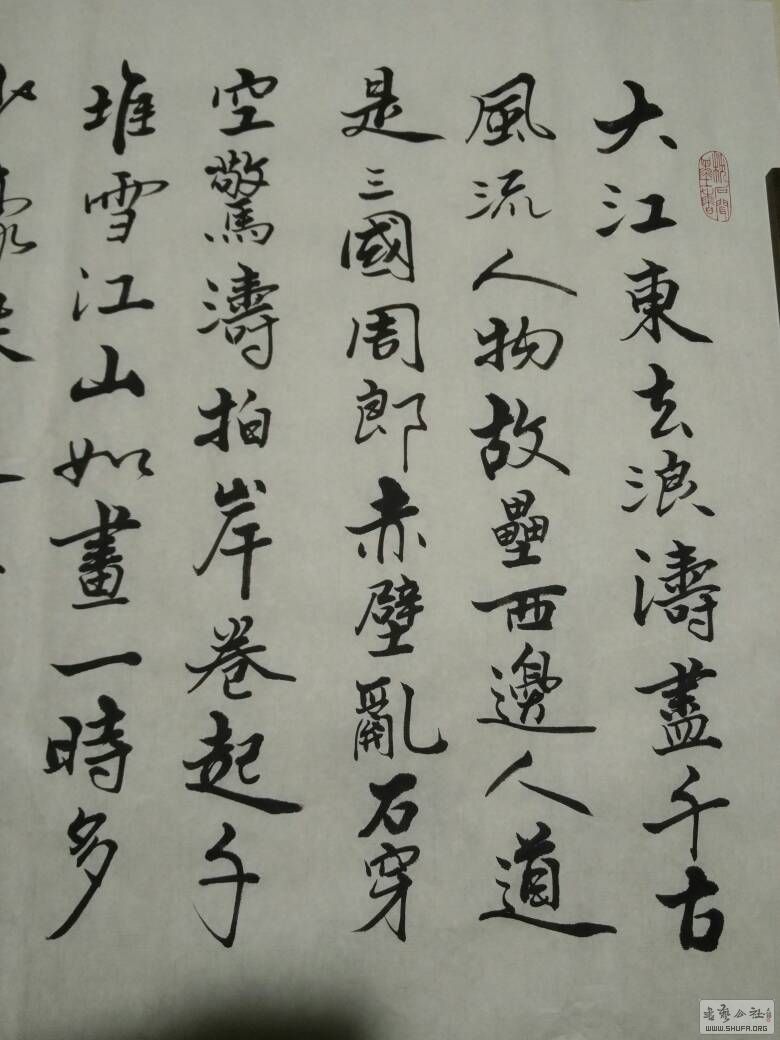 大江東去浪濤盡千古
風流人物故壘西邊人道
是三國周郎赤壁亂石穿
空驚濤拍岸卷起千
堆雪江山如畫一時多
书艺公社
WWW.SHUFA.ORG